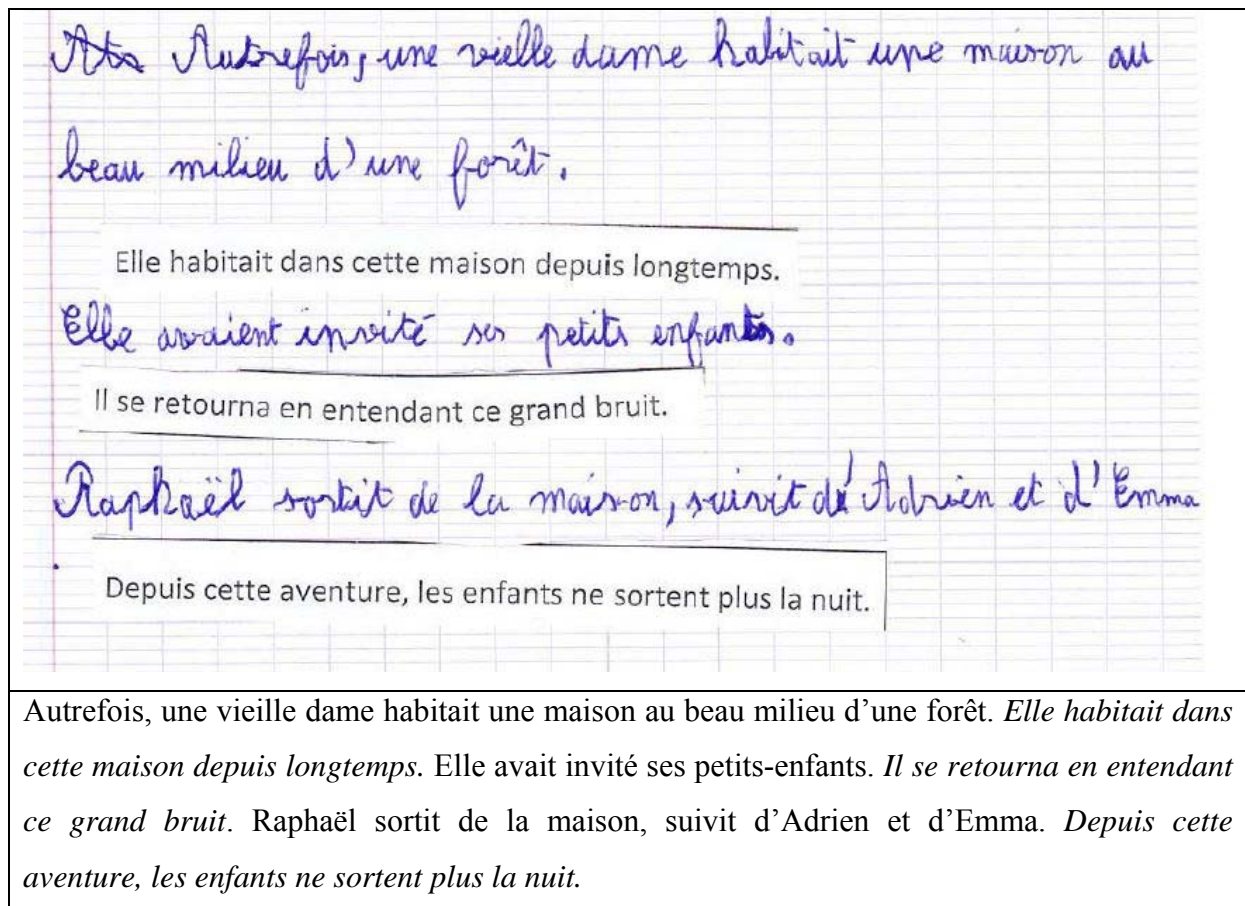 Ats Autrefois, une vielle dame habitait une maison au
beau milieu d'une forêt.
Elle habitait dans cette maison depuis longtemps.
Elle avaient invité ses petits enfants.
Il se retourna en entendant ce grand bruit.
Raphaël sortit de la maison, suivit d'Adrien et d'Emma
.
Depuis cette aventure, les enfants ne sortent plus la nuit.
Autrefois, une vieille dame habitait une maison au beau milieu d’une forêt. Elle habitait dans
cette maison depuis longtemps. Elle avait invité ses petits-enfants. Il se retourna en entendant
ce grand bruit. Raphaël sortit de la maison, suivit d’Adrien et d’Emma. Depuis cette
aventure, les enfants ne sortent plus la nuit.